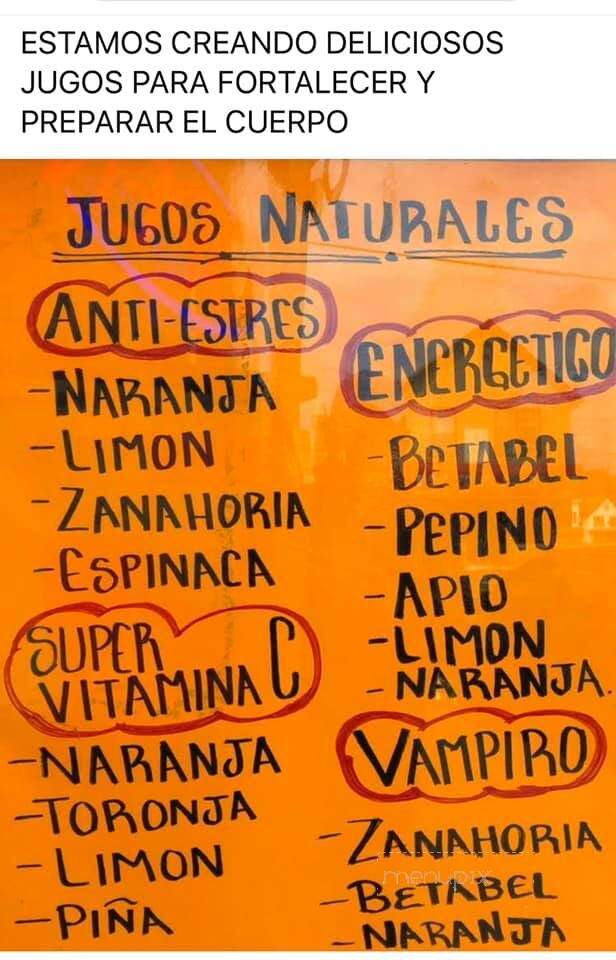 ESTAMOS CREANDO DELICIOSOS
JUGOS PARA FORTALECER Y
PREPARAR EL CUERPO
JUGOS NATURALES
ANTI-ESTRES
-NARANJA
-LIMON
-ZANAHORIA
-ESPINACA
SUPER
VITAMINA C
-NARANJA
-TORONJA
-LIMON
-PIÑA
ENERGETICO
-BETABEL
-PEPINO
-APIO
-LIMON
-NARANJA.
VAMPIRO
-ZANAHORIA
-BETABEL
-NARANJA
menupix